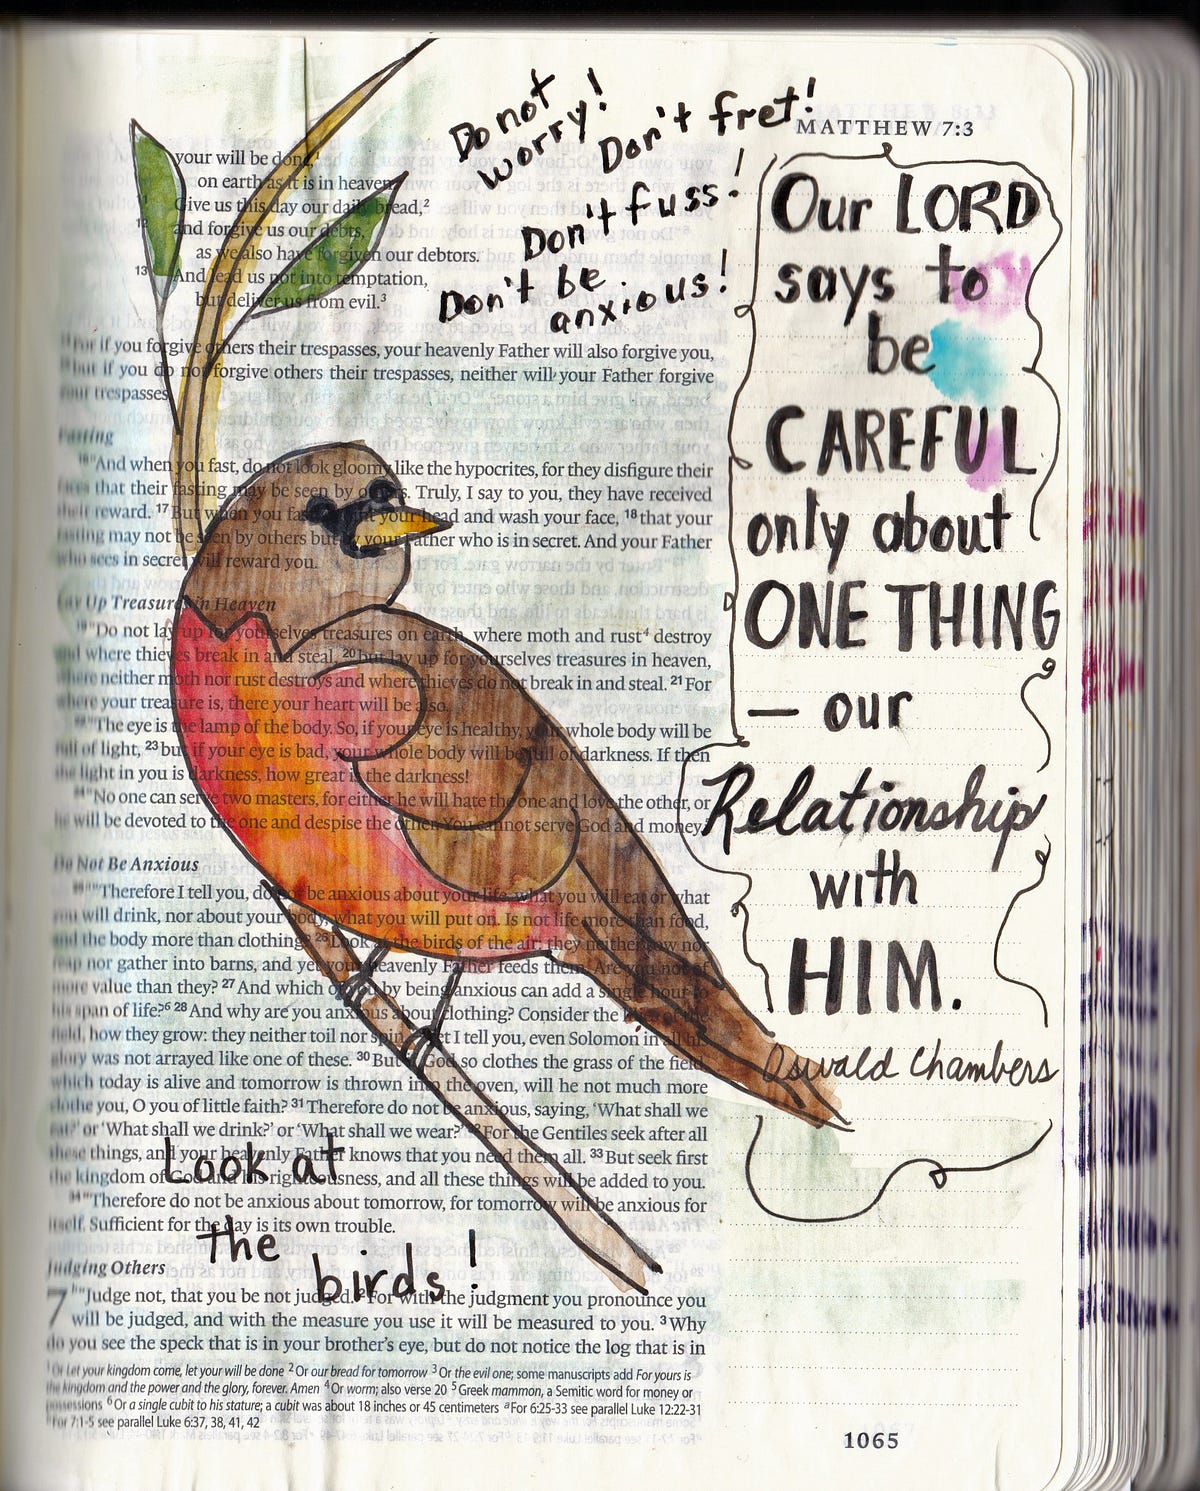 MATTHEW 7:3
Do not
worry!
Don't fret!
Don't fuss!
Don't be
anxious!
your will be done,¹
on earth as it is in heaven.
¹¹ Give us this day our daily bread,²
¹² and forgive us our debts,
as we also have forgiven our debtors.
¹³ And lead us not into temptation,
but deliver us from evil.³
"For if you forgive others their trespasses, your heavenly Father will also forgive you,
but if you do not forgive others their trespasses, neither will your Father forgive
your trespasses.
Fasting
"And when you fast, do not look gloomy like the hypocrites, for they disfigure their
faces that their fasting may be seen by others. Truly, I say to you, they have received
their reward. ¹⁷ But when you fast, your head and wash your face, ¹⁸ that your
fasting may not be seen by others but by your Father who is in secret. And your Father
who sees in secret will reward you.
Lay Up Treasures in Heaven
¹⁹ "Do not lay up for yourselves treasures on earth, where moth and rust⁴ destroy
and where thieves break in and steal, ²⁰ but lay up for yourselves treasures in heaven,
where neither moth nor rust destroys and where thieves do not break in and steal. ²¹ For
where your treasure is, there your heart will be also.
"The eye is the lamp of the body. So, if your eye is healthy, your whole body will be
full of light, ²³ but if your eye is bad, your whole body will be full of darkness. If then
the light in you is darkness, how great is the darkness!
²⁴ "No one can serve two masters, for either he will hate the one and love the other, or
he will be devoted to the one and despise the other. You cannot serve God and money.⁵
Do Not Be Anxious
²⁵ "Therefore I tell you, do not be anxious about your life, what you will eat or what
you will drink, nor about your body, what you will put on. Is not life more than food,
and the body more than clothing? ²⁶ Look at the birds of the air: they neither sow nor
reap nor gather into barns, and yet your heavenly Father feeds them. Are you not of
more value than they? ²⁷ And which of you by being anxious can add a single hour to
his span of life?⁶ ²⁸ And why are you anxious about clothing? Consider the lilies of the
field, how they grow: they neither toil nor spin, yet I tell you, even Solomon in all his
glory was not arrayed like one of these. ³⁰ But if God so clothes the grass of the field,
which today is alive and tomorrow is thrown into the oven, will he not much more
clothe you, O you of little faith? ³¹ Therefore do not be anxious, saying, 'What shall we
eat?' or 'What shall we drink?' or 'What shall we wear?' ³² For the Gentiles seek after all
these things, and your heavenly Father knows that you need them all. ³³ But seek first
the kingdom of God and his righteousness, and all these things will be added to you.
³⁴ "Therefore do not be anxious about tomorrow, for tomorrow will be anxious for
itself. Sufficient for the day is its own trouble.
Look at
the
birds!
Judging Others
7 "Judge not, that you be not judged. ² For with the judgment you pronounce you
will be judged, and with the measure you use it will be measured to you. ³ Why
do you see the speck that is in your brother's eye, but do not notice the log that is in
¹ Or Let your kingdom come, let your will be done ² Or our bread for tomorrow ³ Or the evil one; some manuscripts add For yours is
the kingdom and the power and the glory, forever. Amen ⁴ Or worm; also verse 20 ⁵ Greek mammon, a Semitic word for money or
possessions ⁶ Or a single cubit to his stature; a cubit was about 18 inches or 45 centimeters ᵃ For 6:25-33 see parallel Luke 12:22-31
For 7:1-5 see parallel Luke 6:37, 38, 41, 42
Our LORD
says to
be
CAREFUL
only about
ONE THING
— our
Relationship
with
HIM.
Oswald Chambers
1065